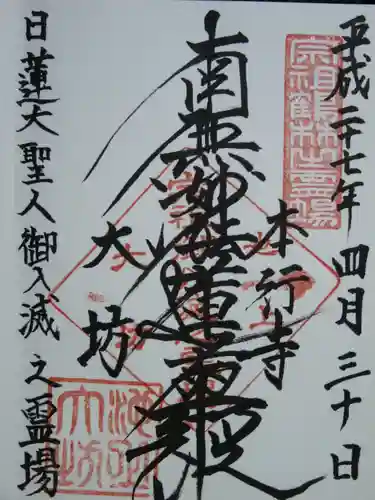 平成二十七年 四月 三十日
本行寺
南無妙法蓮華経
大坊
日蓮大聖人御入滅之霊場
宗祖鶴林之霊場